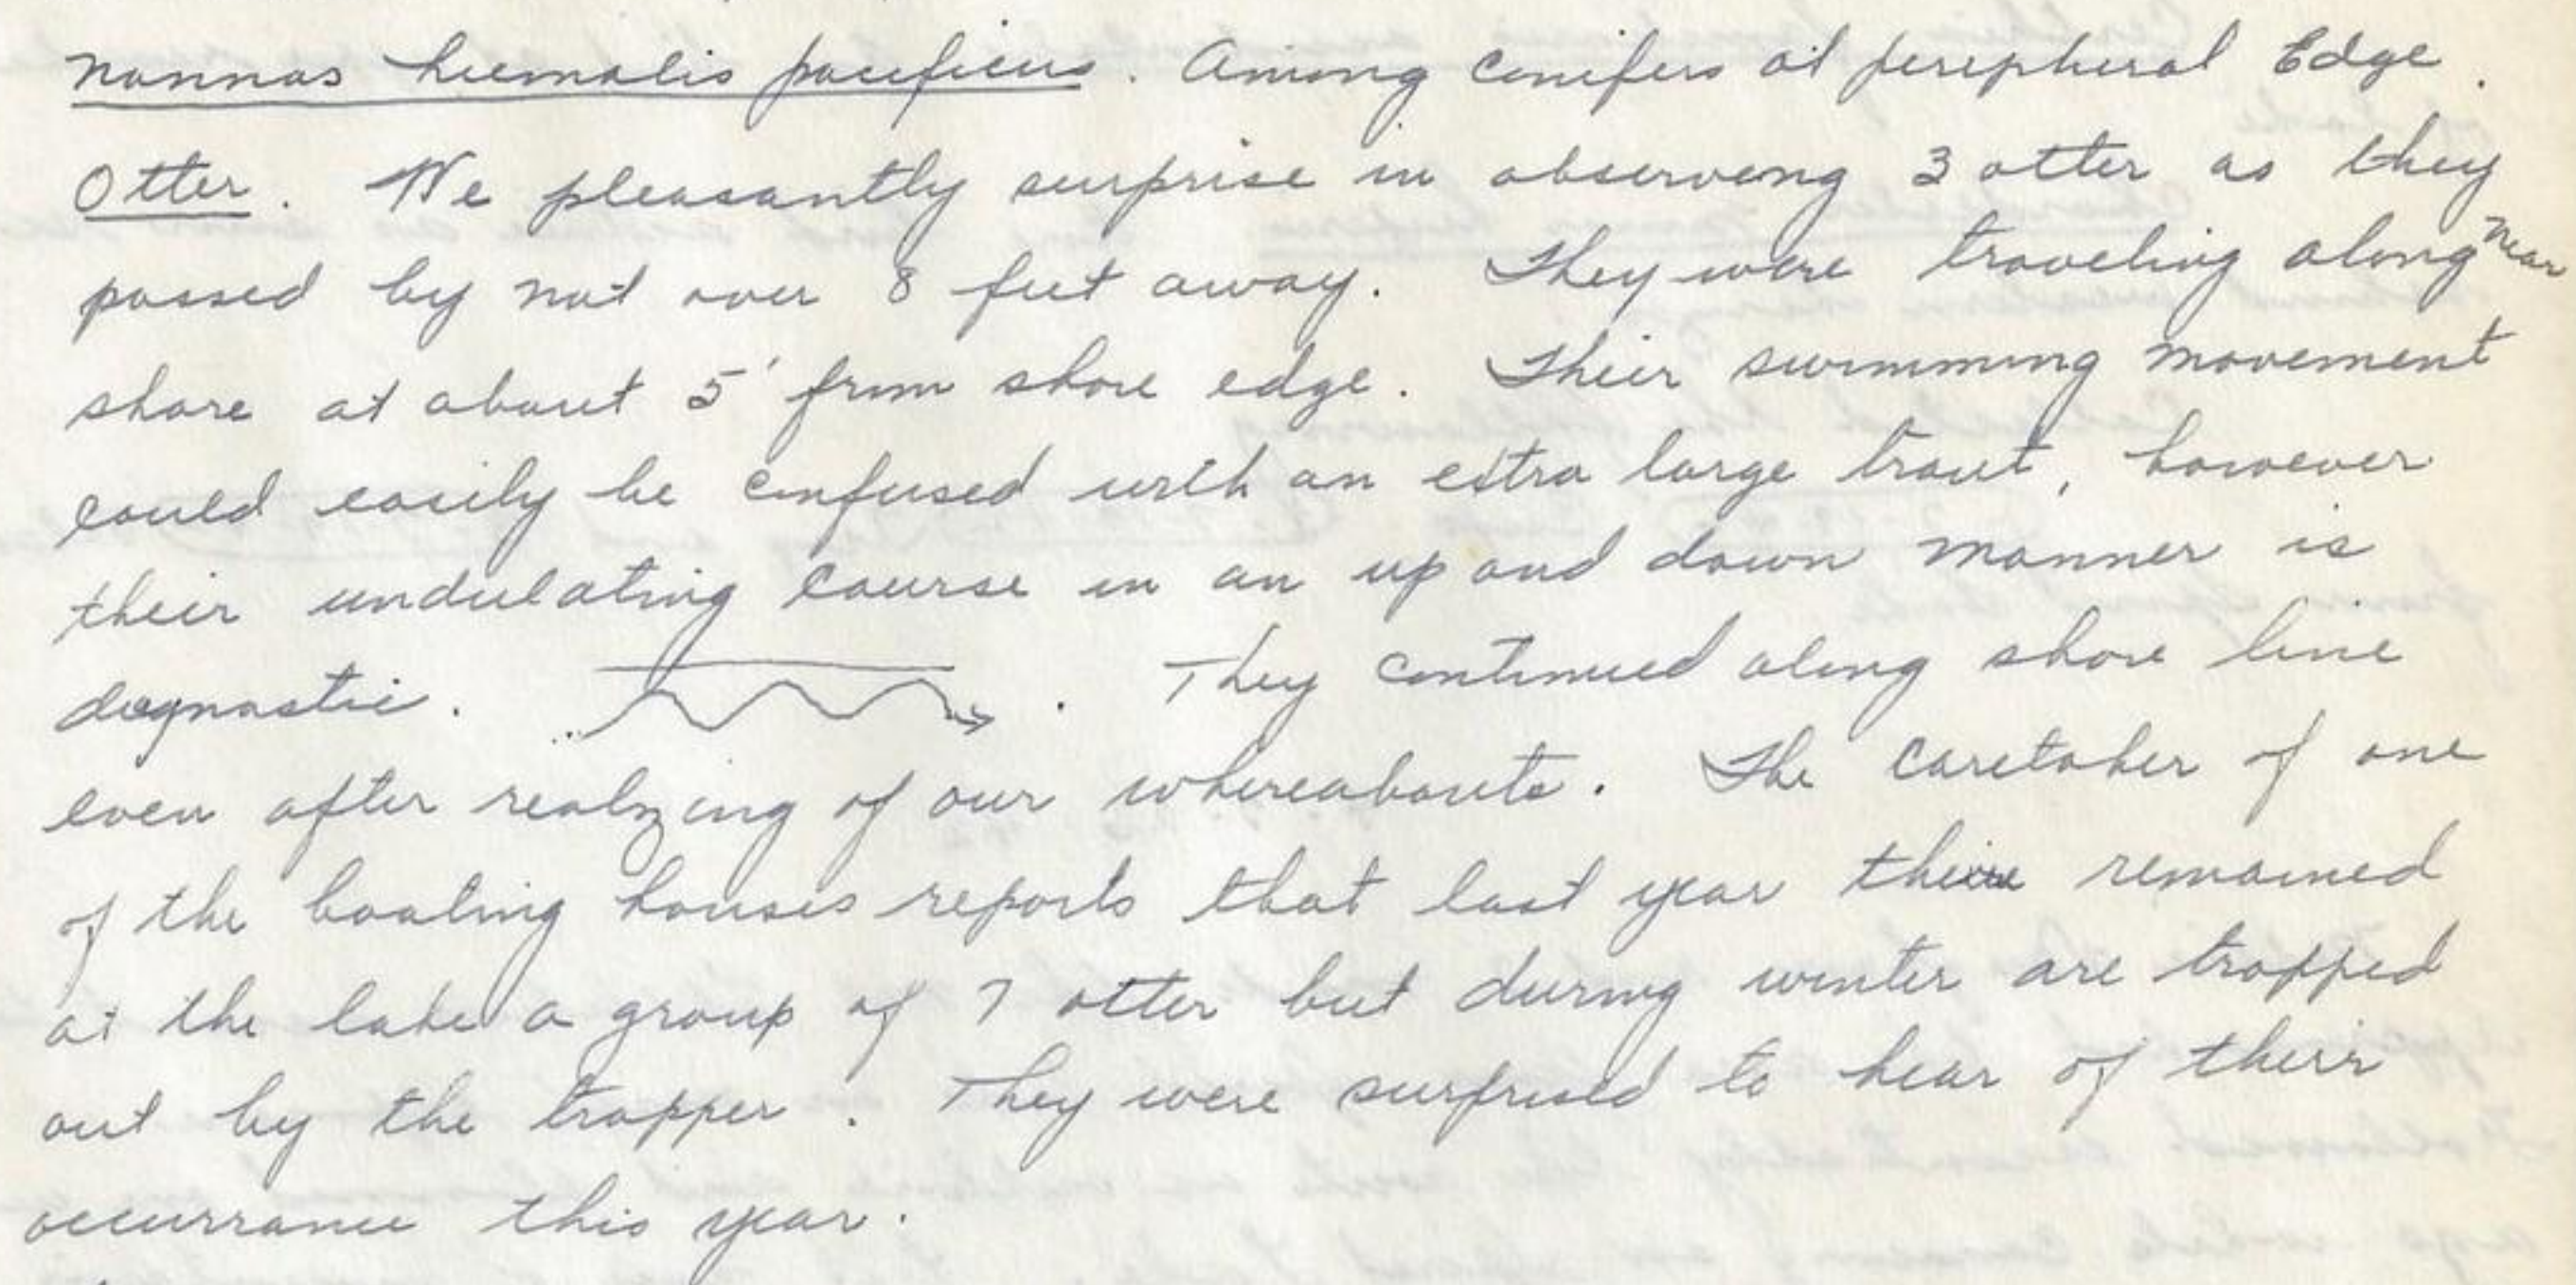 Nannas hiemalis pacificus. Among conifers at peripheral Edge.
Otter. We pleasantly surprise in observeng 3 otter as they
passed by not over 8 feet away. They were traveling along near
shore at about 5' from shore edge. Their swimming movement
could easily be confused with an extra large trout, however
their undulating course in an up and down manner is
diagnostic. . They continued along shore line
even after realizing of our whereabouts. The caretaker of one
of the boating houses reports that last year there remained
at the lake a group of 7 otter but during winter are trapped
out by the trapper. They were surprised to hear of their
occurrance this year.